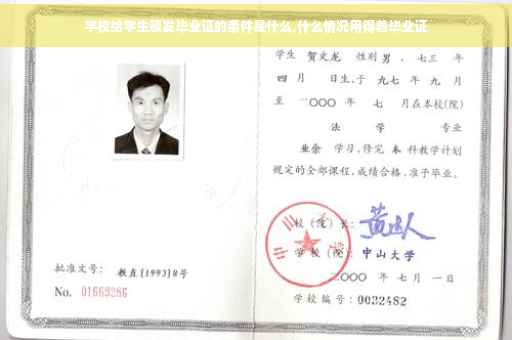 学校给学生颁发毕业证的条件是什么,什么情况用得着毕业证
学生 贺文龙 性别 男，七三 年
四 月 日生，于 九七 年 九 月
至 二〇〇〇 年 七 月在本校(院)
法 学 专业
业余 学习，修完 本 科教学计划
规定的全部课程，成绩合格，准予毕业。
校（院）长：
学校（院）：中山大学
二〇〇〇 年 七 月 一 日
学校编号：0032482
批准文号：教直[1993]8号
No. 01669286